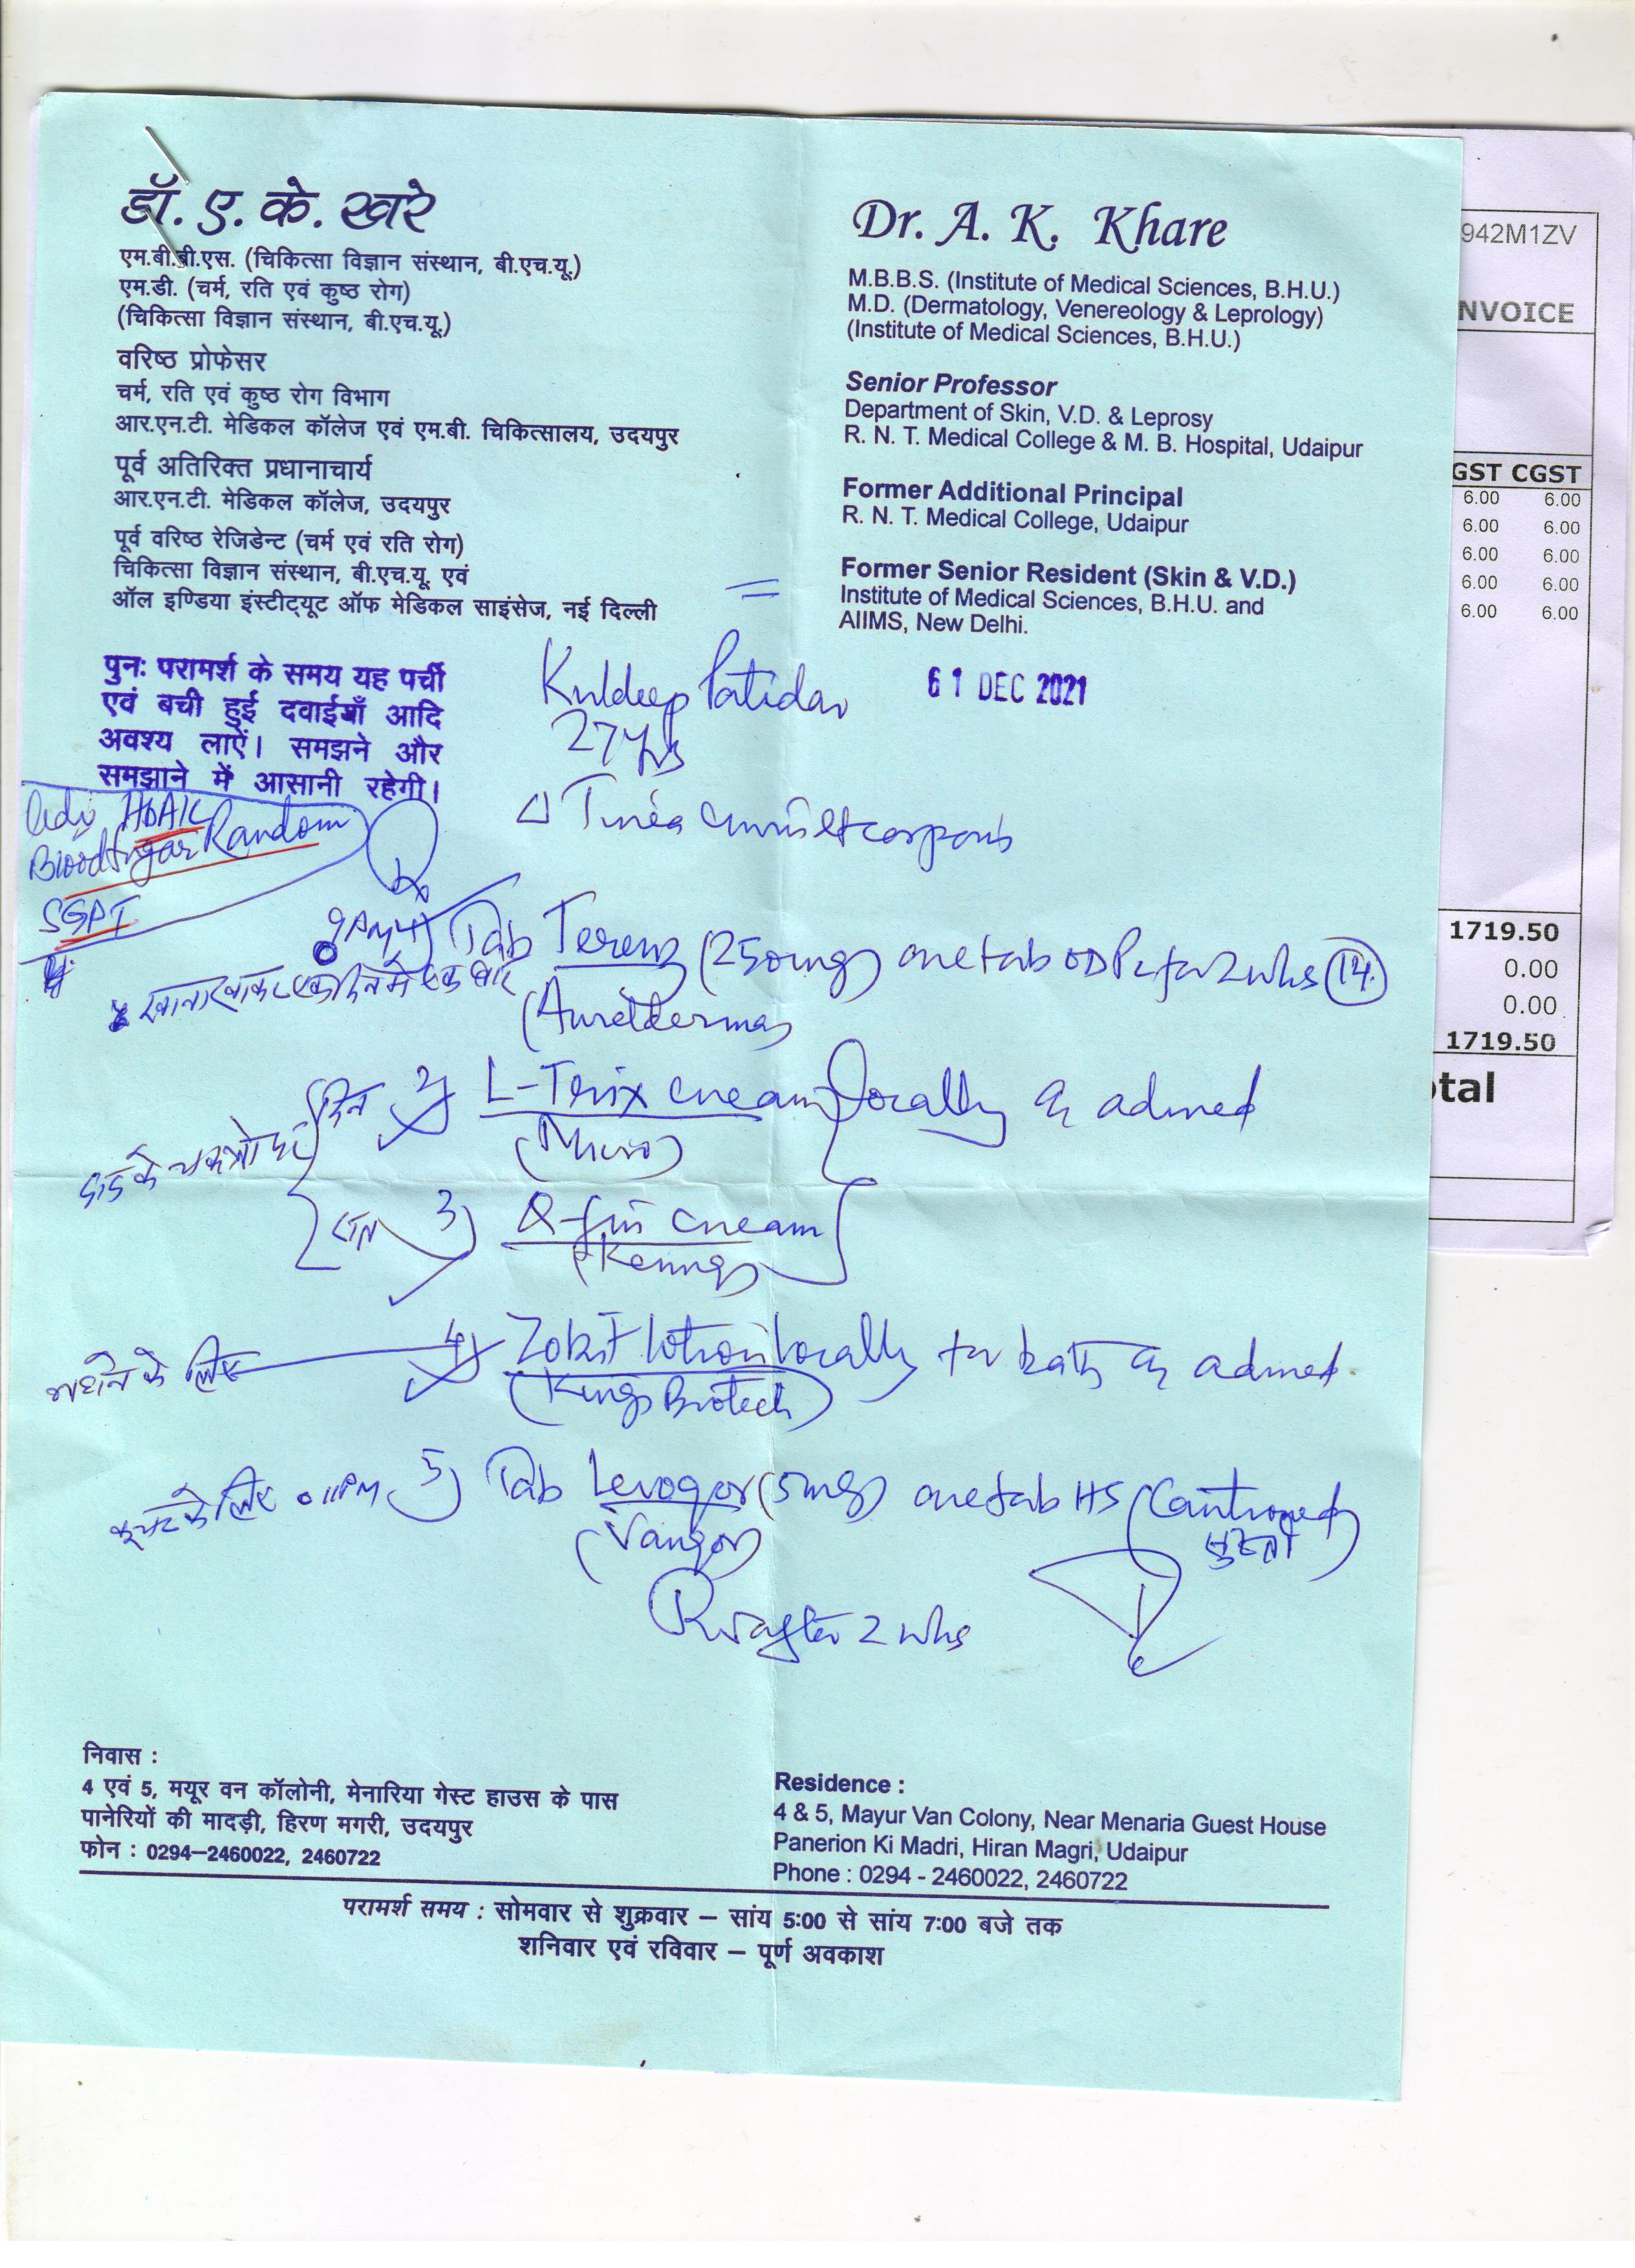 डॉ. ए. के. खरे
एम.बी.बी.एस. (चिकित्सा विज्ञान संस्थान, बी.एच.यू.)
एम.डी. (चर्म, रति एवं कुष्ठ रोग)
(चिकित्सा विज्ञान संस्थान, बी.एच.यू.)
वरिष्ठ प्रोफेसर
चर्म, रति एवं कुष्ठ रोग विभाग
आर.एन.टी. मेडिकल कॉलेज एवं एम.बी. चिकित्सालय, उदयपुर
पूर्व अतिरिक्त प्रधानाचार्य
आर.एन.टी. मेडिकल कॉलेज, उदयपुर
पूर्व वरिष्ठ रेजिडेन्ट (चर्म एवं रति रोग)
चिकित्सा विज्ञान संस्थान, बी.एच.यू. एवं
ऑल इण्डिया इंस्टीट्यूट ऑफ मेडिकल साइंसेज, नई दिल्ली
Dr. A. K. Khare
M.B.B.S. (Institute of Medical Sciences, B.H.U.)
M.D. (Dermatology, Venereology & Leprology)
(Institute of Medical Sciences, B.H.U.)
Senior Professor
Department of Skin, V.D. & Leprosy
R. N. T. Medical College & M. B. Hospital, Udaipur
Former Additional Principal
R. N. T. Medical College, Udaipur
Former Senior Resident (Skin & V.D.)
Institute of Medical Sciences, B.H.U. and
AIIMS, New Delhi.
942M1ZV
NVOICE
GST CGST
6.00 6.00
6.00 6.00
6.00 6.00
6.00 6.00
6.00 6.00
1719.50
0.00
0.00
1719.50
otal
पुनः परामर्श के समय यह पर्ची
एवं बची हुई दवाईयाँ आदि
अवश्य लाऐं। समझने और
समझाने में आसानी रहेगी।
Kuldeep Patidar
27 yrs
61 DEC 2021
HbA1C
Blood Sugar Random
SGPT
Tinea cruris et corporis
9PM 1) Tab (250mg) one tab OD for 2 wks (14)
खाना खाकर एक दिन में एक बार
दिन 2) L-Trix cream locally as advised
(Micro)
दाद के चकत्तो पर
रात 3) Q-fin cream
नहाने के लिए 4) lotion locally for bath as advised
(Kings Biotech)
के लिए 11PM 5) Tab Levogor (5mg) one tab HS (Cautioned)
सुस्ती
(Vangor)
R/v after 2 wks
निवास :
4 एवं 5, मयूर वन कॉलोनी, मेनारिया गेस्ट हाउस के पास
पानेरियों की मादड़ी, हिरण मगरी, उदयपुर
फोन : 0294–2460022, 2460722
Residence :
4 & 5, Mayur Van Colony, Near Menaria Guest House
Panerion Ki Madri, Hiran Magri, Udaipur
Phone : 0294 - 2460022, 2460722
परामर्श समय : सोमवार से शुक्रवार – सांय 5:00 से सांय 7:00 बजे तक
शनिवार एवं रविवार – पूर्ण अवकाश